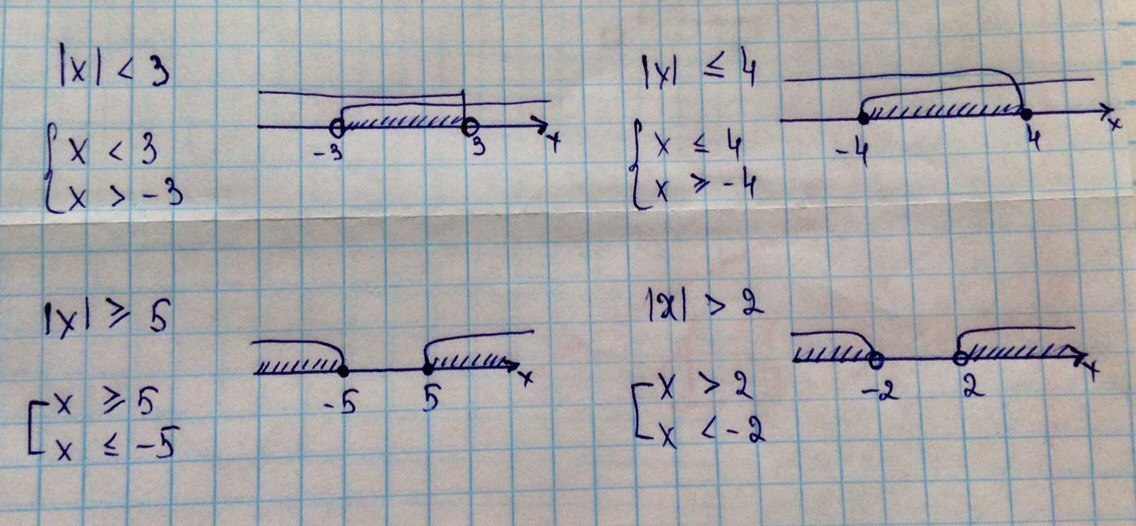 |x| < 3
{ x < 3
x > -3
-3 3 x
|x| ≤ 4
{ x ≤ 4
x ≥ -4
-4 4 x
|x| ≥ 5
[ x ≥ 5
x ≤ -5
-5 5 x
|x| > 2
[ x > 2
x < -2
-2 2 x